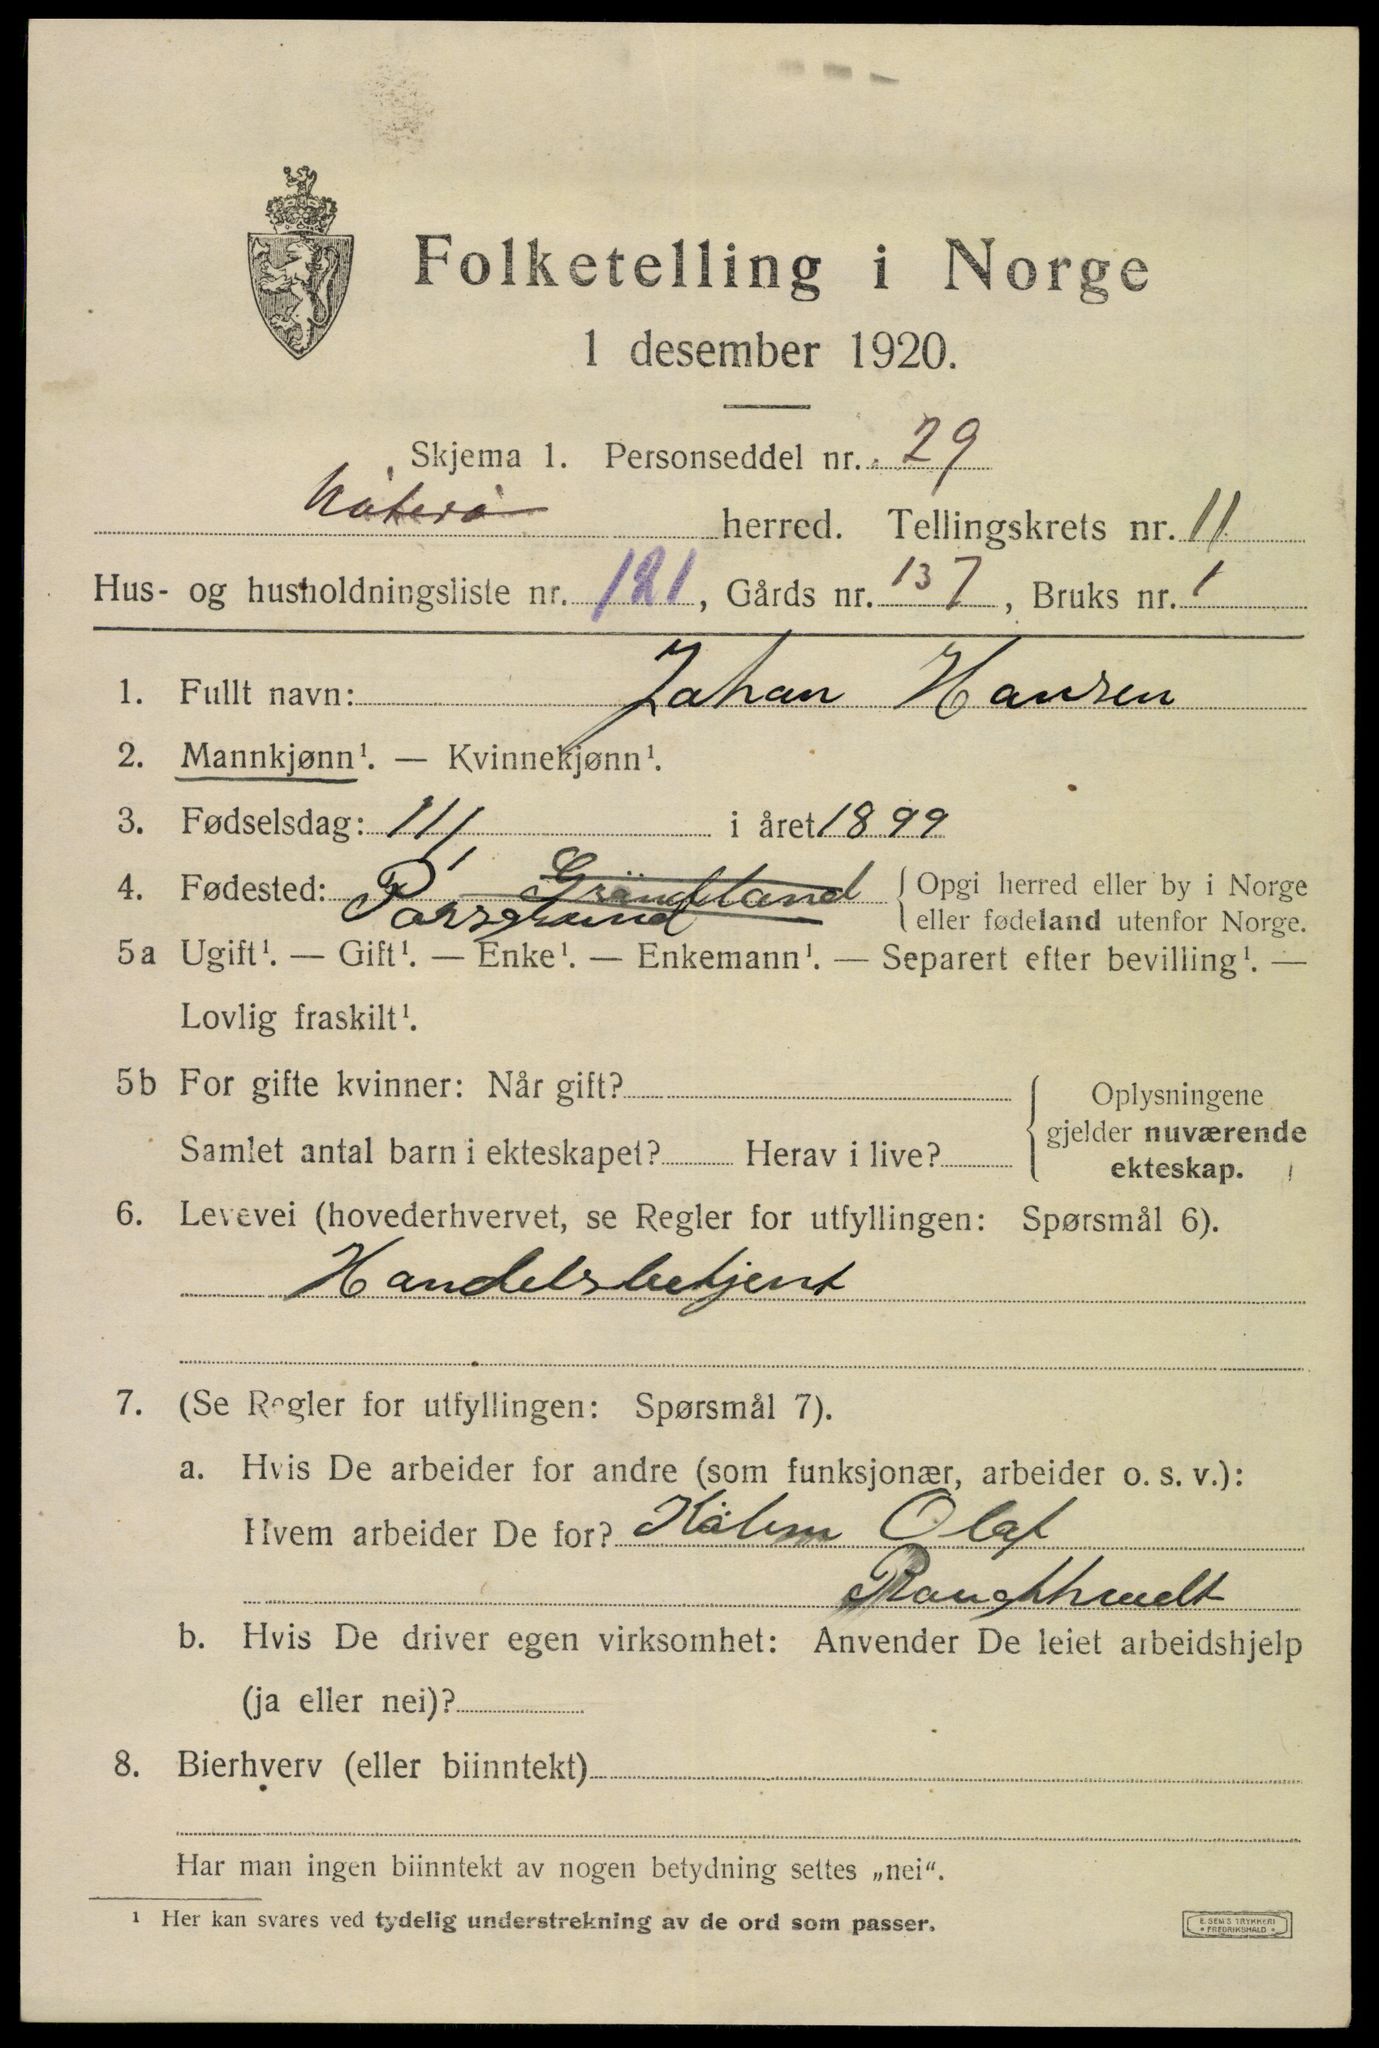 Folketelling i Norge
1 desember 1920.
Skjema 1. Personseddel nr. 29
Nøterø herred. Tellingskrets nr. 11
Hus- og husholdningsliste nr. 121, Gårds nr. 137, Bruks nr. 1
1. Fullt navn: Johan Hansen
2. Mannkjønn¹. — Kvinnekjønn¹.
3. Fødselsdag: 11/1 i året 1899
4. Fødested: Porsgrund { Opgi herred eller by i Norge
eller fødeland utenfor Norge.
5a Ugift¹. — Gift¹. — Enke¹. — Enkemann¹. — Separert efter bevilling¹. —
Lovlig fraskilt¹.
5b For gifte kvinner: Når gift? { Oplysningene
gjelder nuværende
Samlet antal barn i ekteskapet? Herav i live? ekteskap.
6. Levevei (hovederhvervet, se Regler for utfyllingen: Spørsmål 6).
Handelsbetjent
7. (Se Regler for utfyllingen: Spørsmål 7).
a. Hvis De arbeider for andre (som funksjonær, arbeider o. s. v.):
Hvem arbeider De for? Olaf
b. Hvis De driver egen virksomhet: Anvender De leiet arbeidshjelp
(ja eller nei)?
8. Bierhverv (eller biinntekt)
Har man ingen biinntekt av nogen betydning settes „nei“.
¹ Her kan svares ved tydelig understrekning av de ord som passer.
E. SEM'S TRYKKERI
• FREDRIKSHALD •